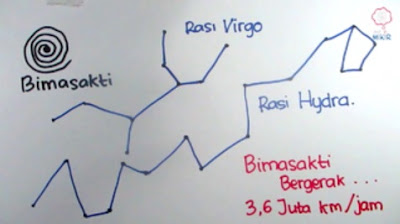 Rasi Virgo
Bimasakti
Rasi Hydra.
Bimasakti
Bergerak ...
3,6 Juta km/jam